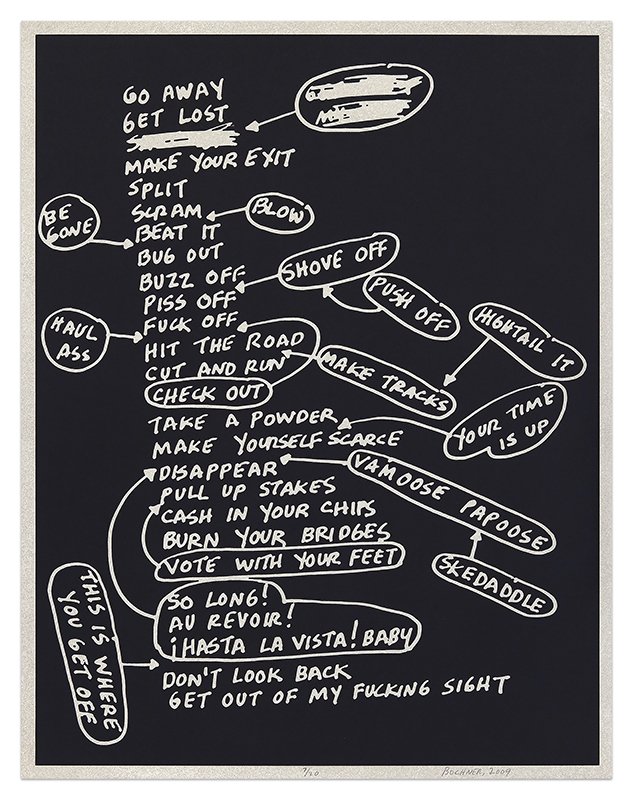 GO AWAY
GET LOST
MAKE YOUR EXIT
SPLIT
SCRAM
BLOW
BE GONE
BEAT IT
BUG OUT
SHOVE OFF
BUZZ OFF
PUSH OFF
PISS OFF
FUCK OFF
HIGHTAIL IT
HAUL ASS
HIT THE ROAD
CUT AND RUN
MAKE TRACKS
CHECK OUT
TAKE A POWDER
YOUR TIME IS UP
MAKE YOURSELF SCARCE
DISAPPEAR
VAMOOSE PAPOOSE
PULL UP STAKES
CASH IN YOUR CHIPS
BURN YOUR BRIDGES
VOTE WITH YOUR FEET
SKEDADDLE
SO LONG!
AU REVOIR!
¡HASTA LA VISTA! BABY
THIS IS WHERE
YOU GET OFF
DON'T LOOK BACK
GET OUT OF MY FUCKING SIGHT
7/20
BOCHNER, 2009